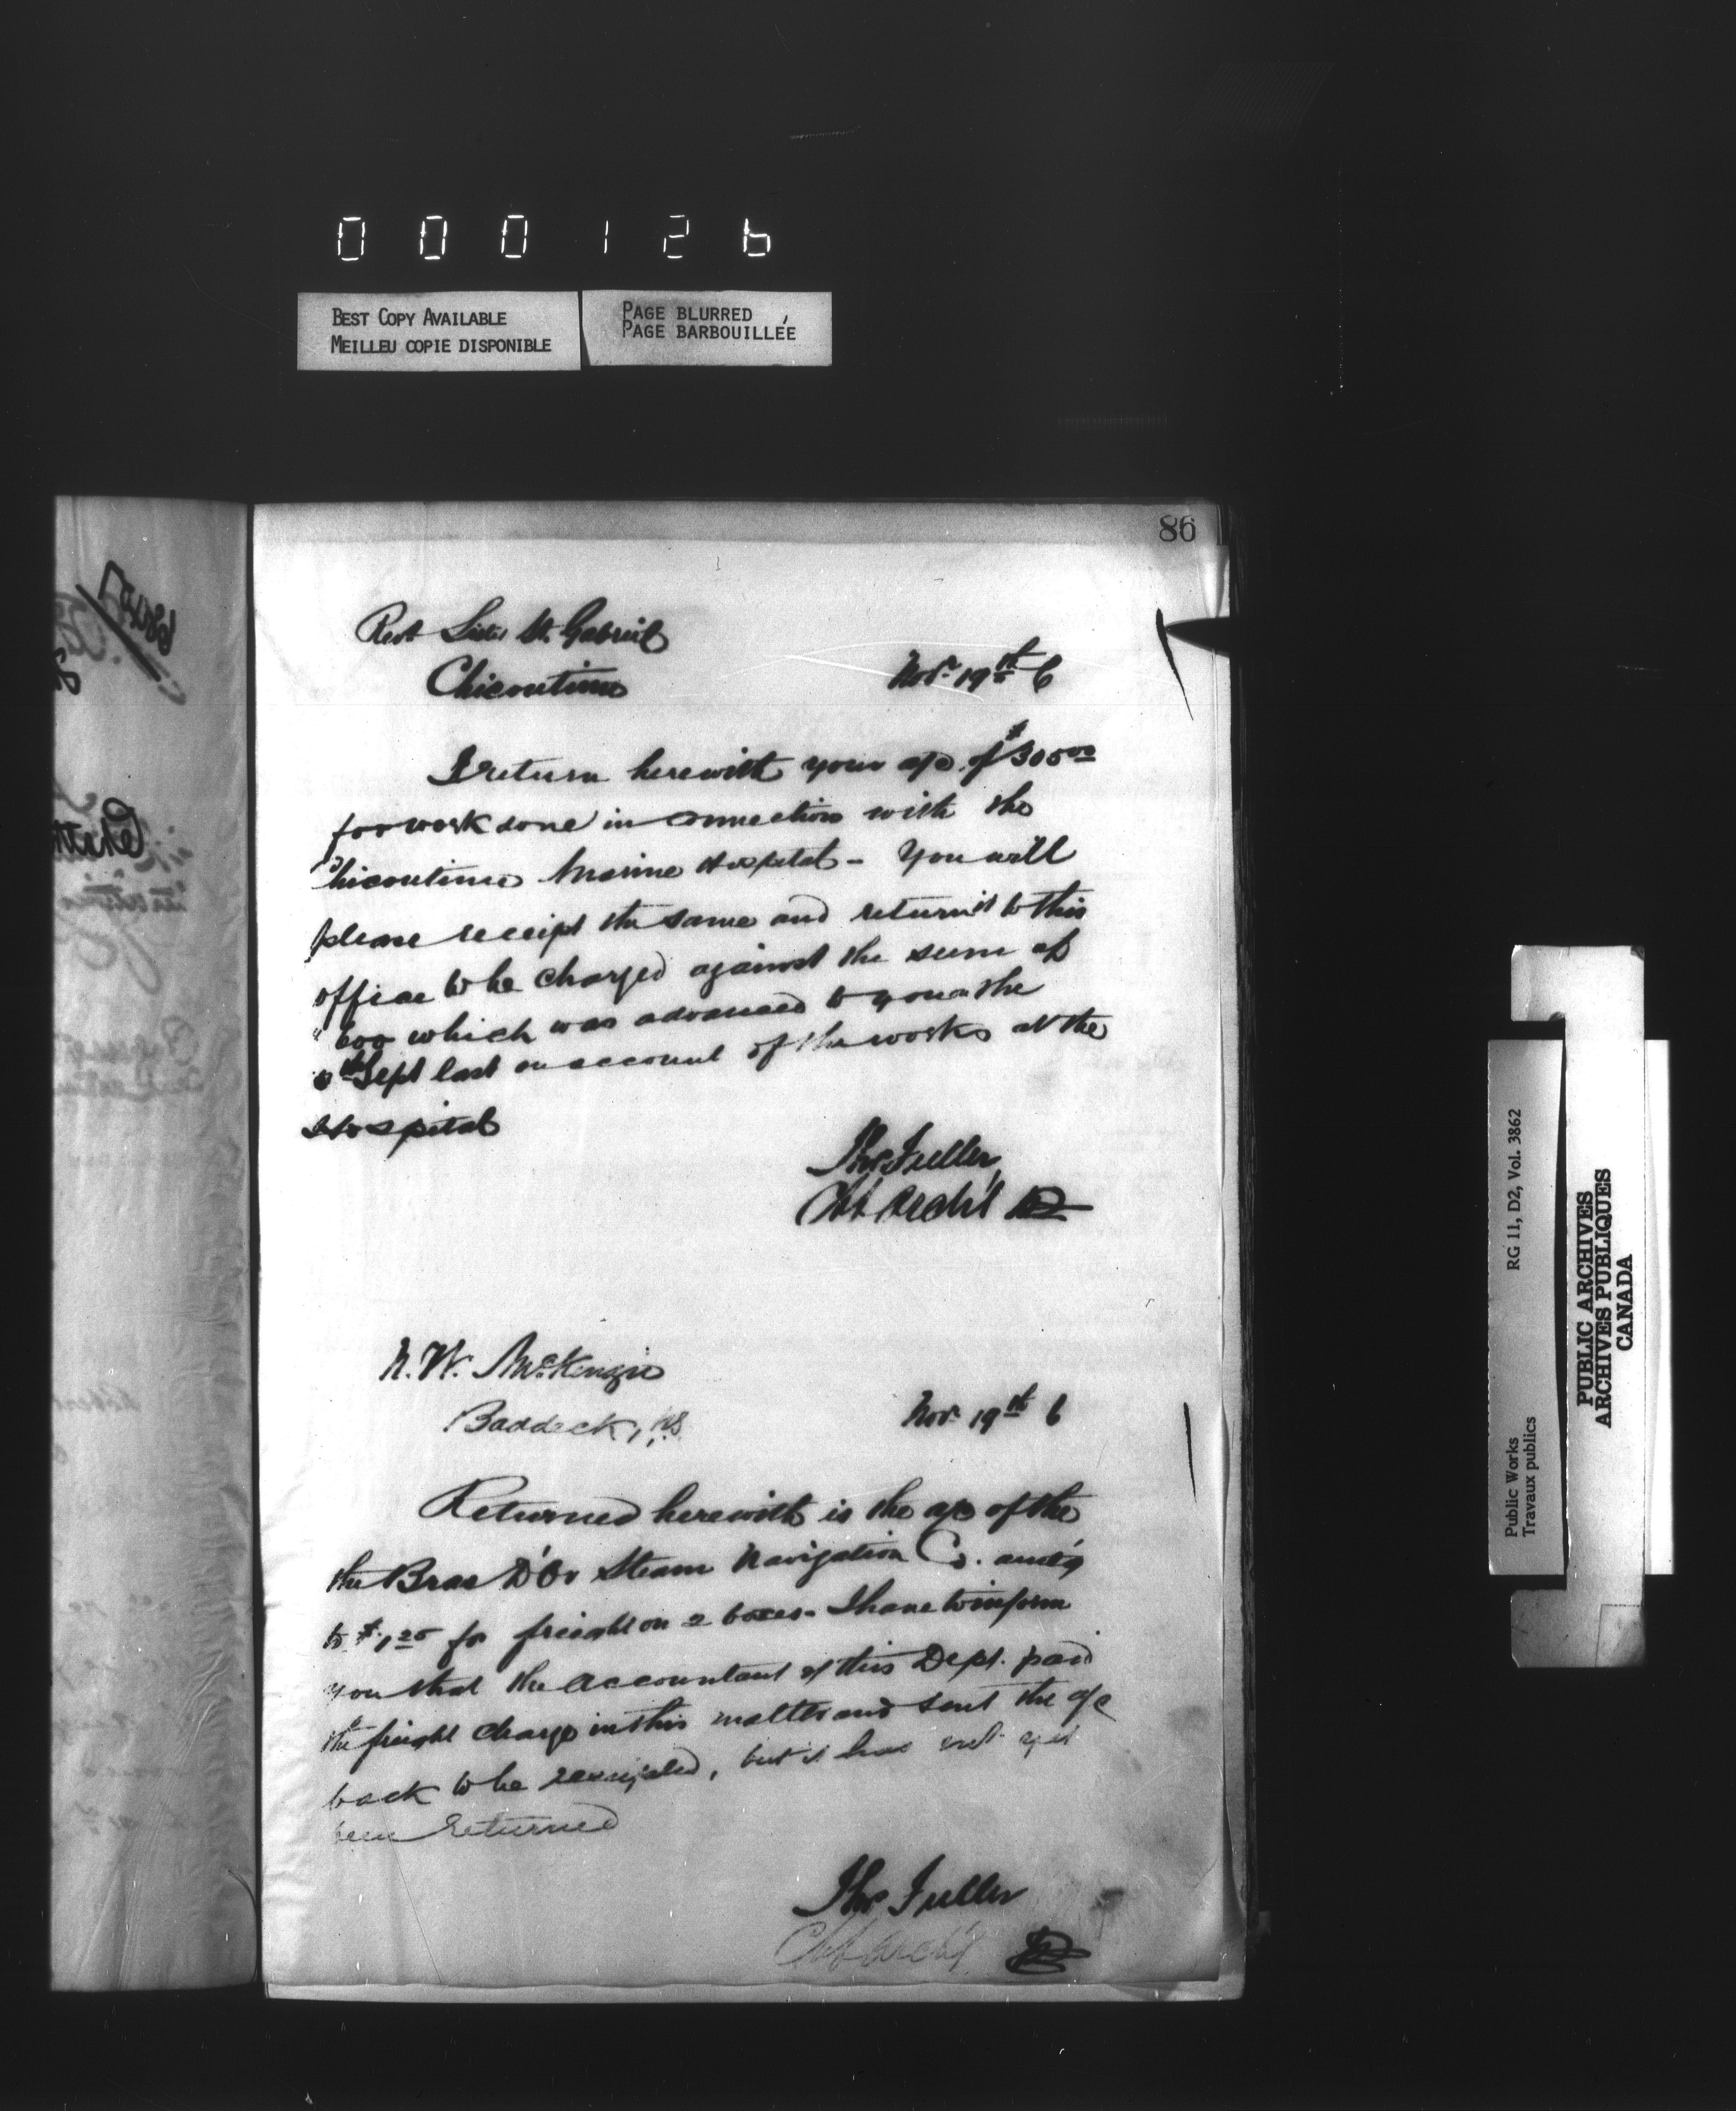 000126
BEST COPY AVAILABLE
MEILLEU COPIE DISPONIBLE
PAGE BLURRED
PAGE BARBOUILLÉE
86
Revt Sister St. Gabriel
Chicoutimi
Nov. 19th 6
I return herewith your a/c of $305.00
for work done in connection with the
Chicoutimi Marine Hospital - You will
please receipt the same and return it to this
office to be charged against the sum of
"600 which was advanced to you on the
Sept last on account of the works at the
Hospital
Thos Fuller
Ch Archt
N. W. McKenzie
Baddeck, N.S.
Nov. 19th 6
Returned herewith is the a/c of the
the Bras D'Or Steam Navigation Co. amt'g
to $1.25 for freight on 2 boxes - I have to inform
you that the Accountant of this Dept. paid
the freight charge in this matter and sent the a/c
back to be receipted, but it has not yet
been returned
Thos Fuller
Ch Archt
RG 11, D2, Vol. 3862
Public Works
Travaux publics
PUBLIC ARCHIVES
ARCHIVES PUBLIQUES
CANADA